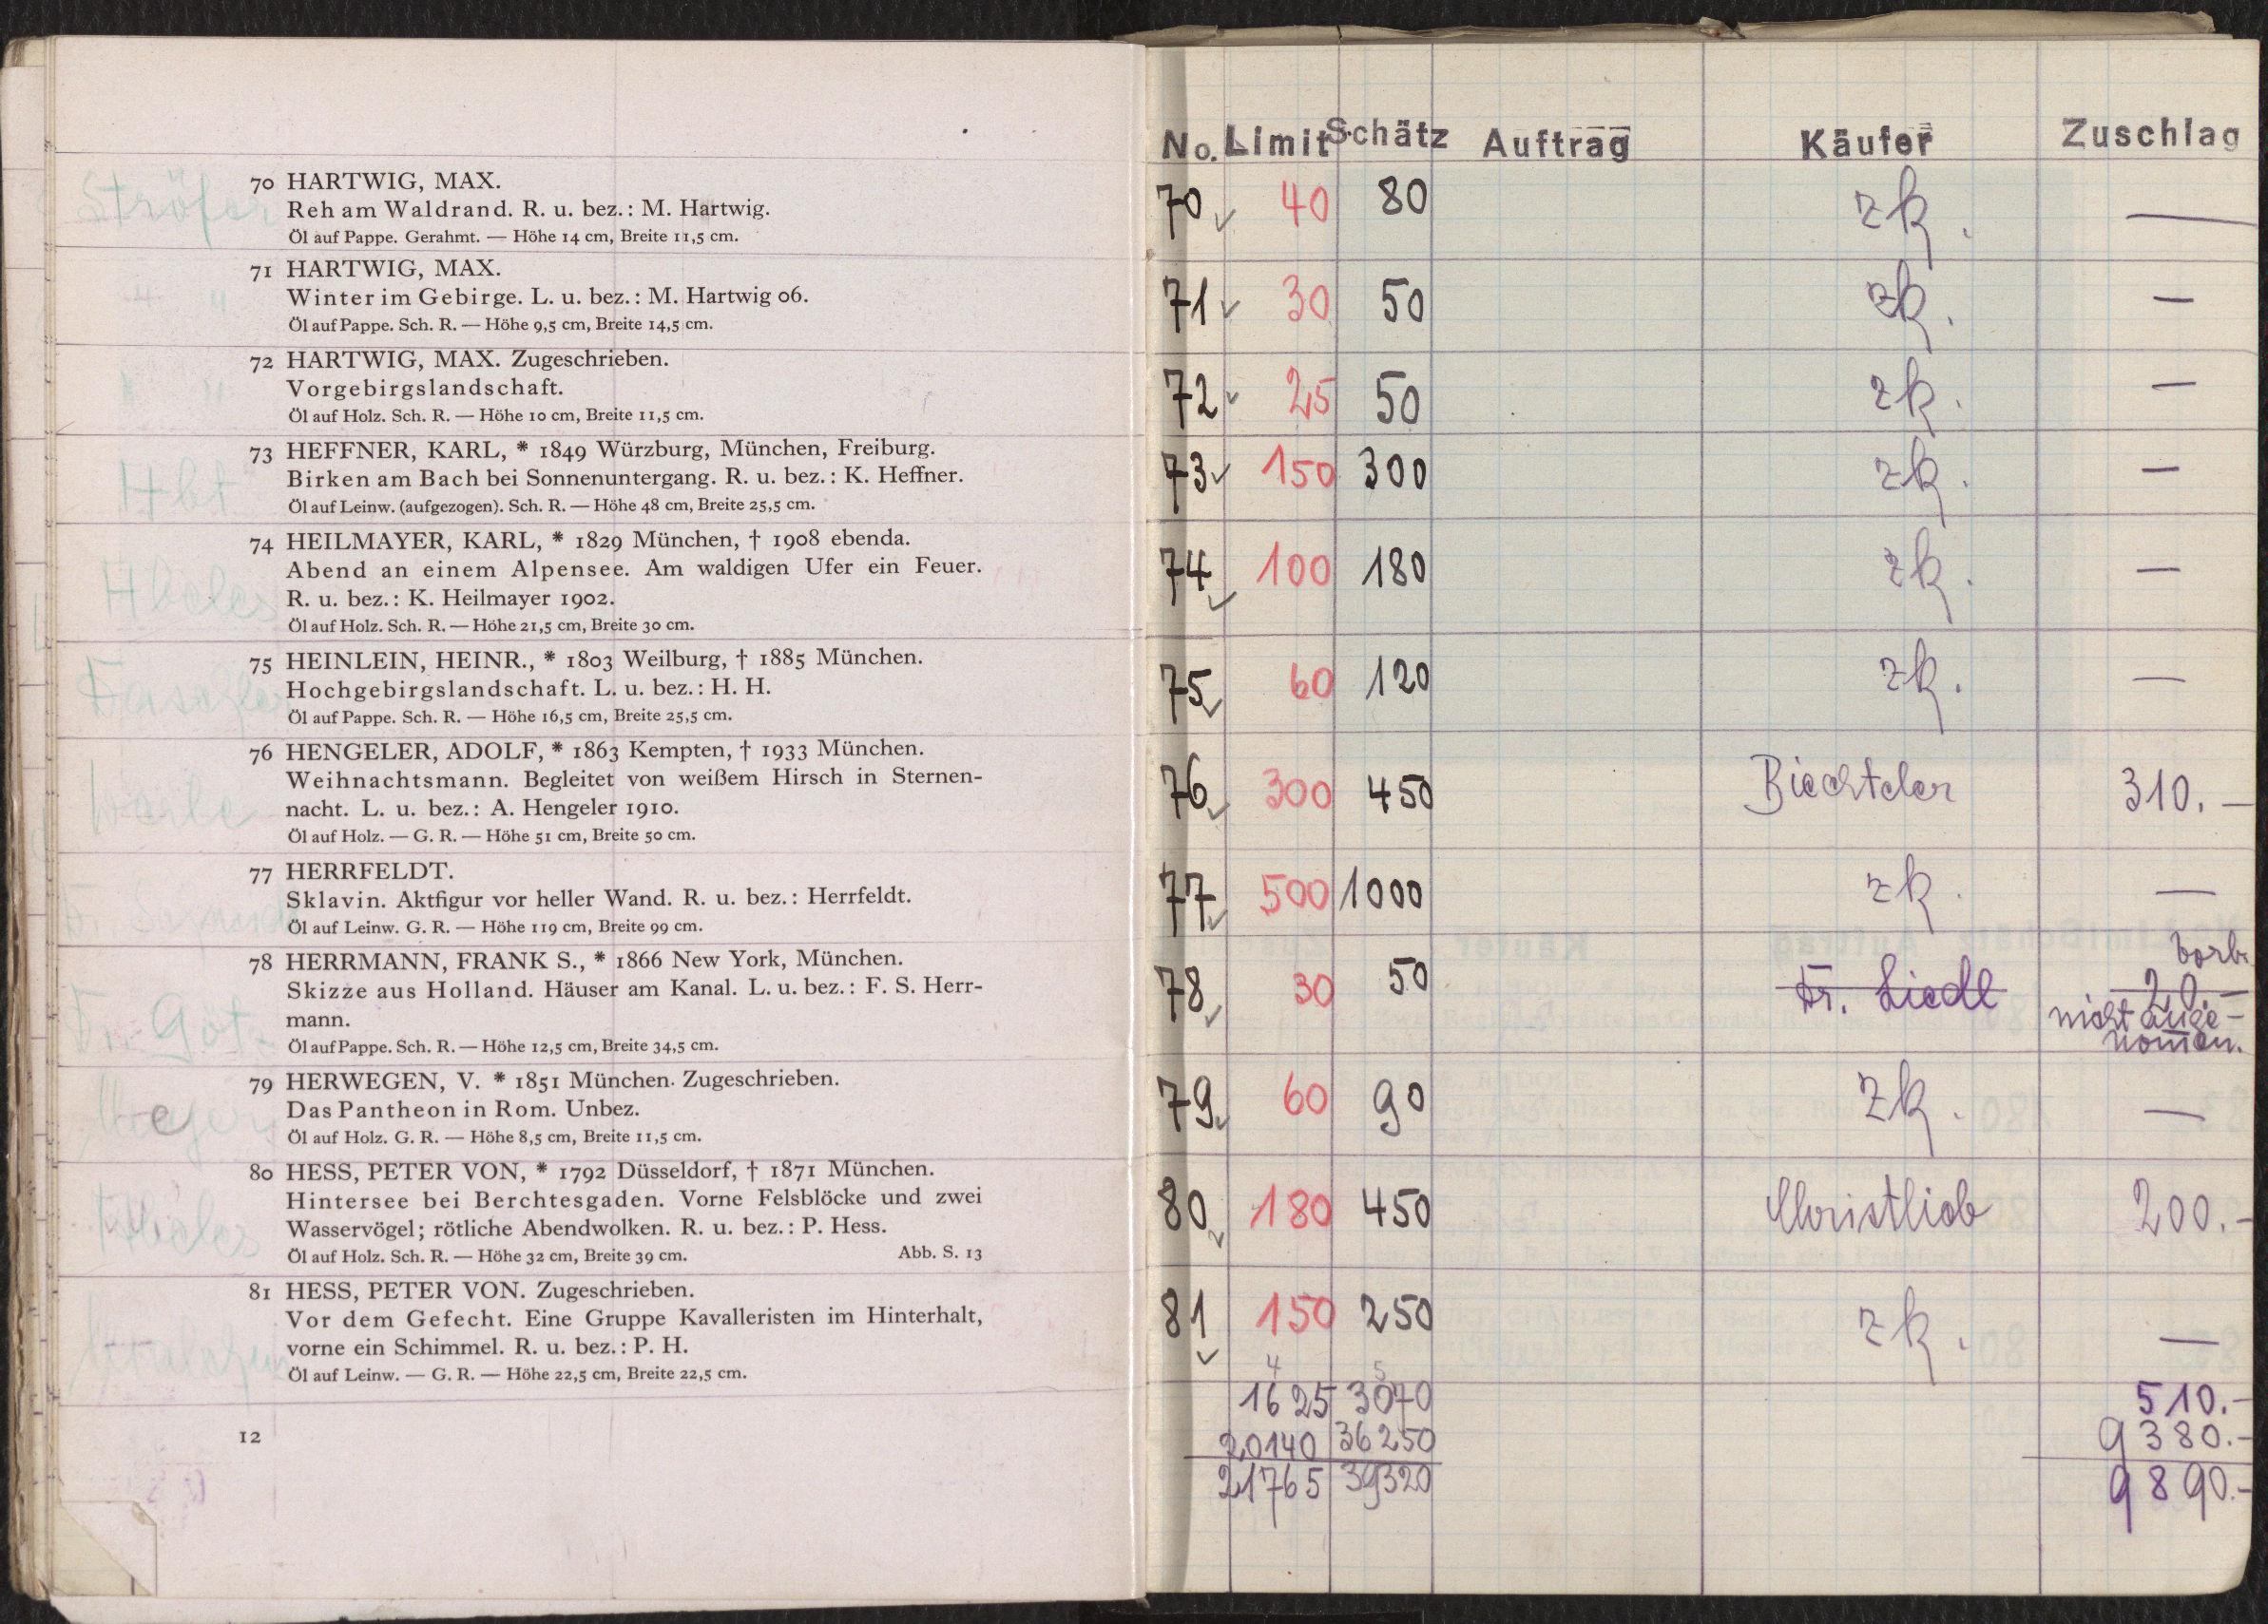 70 HARTWIG, MAX.
Reh am Waldrand. R. u. bez.: M. Hartwig.
Öl auf Pappe. Gerahmt. — Höhe 14 cm, Breite 11,5 cm.
71 HARTWIG, MAX.
Winter im Gebirge. L. u. bez.: M. Hartwig 06.
Öl auf Pappe. Sch. R. — Höhe 9,5 cm, Breite 14,5 cm.
72 HARTWIG, MAX. Zugeschrieben.
Vorgebirgslandschaft.
Öl auf Holz. Sch. R. — Höhe 10 cm, Breite 11,5 cm.
Hbt
73 HEFFNER, KARL, * 1849 Würzburg, München, Freiburg.
Birken am Bach bei Sonnenuntergang. R. u. bez.: K. Heffner.
Öl auf Leinw. (aufgezogen). Sch. R. — Höhe 48 cm, Breite 25,5 cm.
74 HEILMAYER, KARL, * 1829 München, † 1908 ebenda.
Abend an einem Alpensee. Am waldigen Ufer ein Feuer.
R. u. bez.: K. Heilmayer 1902.
Öl auf Holz. Sch. R. — Höhe 21,5 cm, Breite 30 cm.
75 HEINLEIN, HEINR., * 1803 Weilburg, † 1885 München.
Hochgebirgslandschaft. L. u. bez.: H. H.
Öl auf Pappe. Sch. R. — Höhe 16,5 cm, Breite 25,5 cm.
76 HENGELER, ADOLF, * 1863 Kempten, † 1933 München.
Weihnachtsmann. Begleitet von weißem Hirsch in Sternen-
nacht. L. u. bez.: A. Hengeler 1910.
Öl auf Holz. — G. R. — Höhe 51 cm, Breite 50 cm.
77 HERRFELDT.
Sklavin. Aktfigur vor heller Wand. R. u. bez.: Herrfeldt.
Öl auf Leinw. G. R. — Höhe 119 cm, Breite 99 cm.
78 HERRMANN, FRANK S., * 1866 New York, München.
Skizze aus Holland. Häuser am Kanal. L. u. bez.: F. S. Herr-
mann.
Öl auf Pappe. Sch. R. — Höhe 12,5 cm, Breite 34,5 cm.
79 HERWEGEN, V. * 1851 München. Zugeschrieben.
Das Pantheon in Rom. Unbez.
Öl auf Holz. G. R. — Höhe 8,5 cm, Breite 11,5 cm.
80 HESS, PETER VON, * 1792 Düsseldorf, † 1871 München.
Hintersee bei Berchtesgaden. Vorne Felsblöcke und zwei
Wasservögel; rötliche Abendwolken. R. u. bez.: P. Hess.
Öl auf Holz. Sch. R. — Höhe 32 cm, Breite 39 cm. Abb. S. 13
81 HESS, PETER VON. Zugeschrieben.
Vor dem Gefecht. Eine Gruppe Kavalleristen im Hinterhalt,
vorne ein Schimmel. R. u. bez.: P. H.
Öl auf Leinw. — G. R. — Höhe 22,5 cm, Breite 22,5 cm.
12
No. Limit Schätz Auftrag Käufer Zuschlag
70 40 80 zk. —
71 30 50 zk. —
72 25 50 zk. —
73 150 300 zk. —
74 100 180 zk. —
75 60 120 zk. —
76 300 450 Biechteler 310.—
77 500 1000 zk. —
vorb.
78 30 50 Fr. Liedl 20.—
nicht ange-
nommen.
79 60 90 zk. —
80 180 450 Christlieb 200.—
81 150 250 zk. —
4 5
1625 3070 510.—
20140 36250 9380.—
21765 39320 9890.—